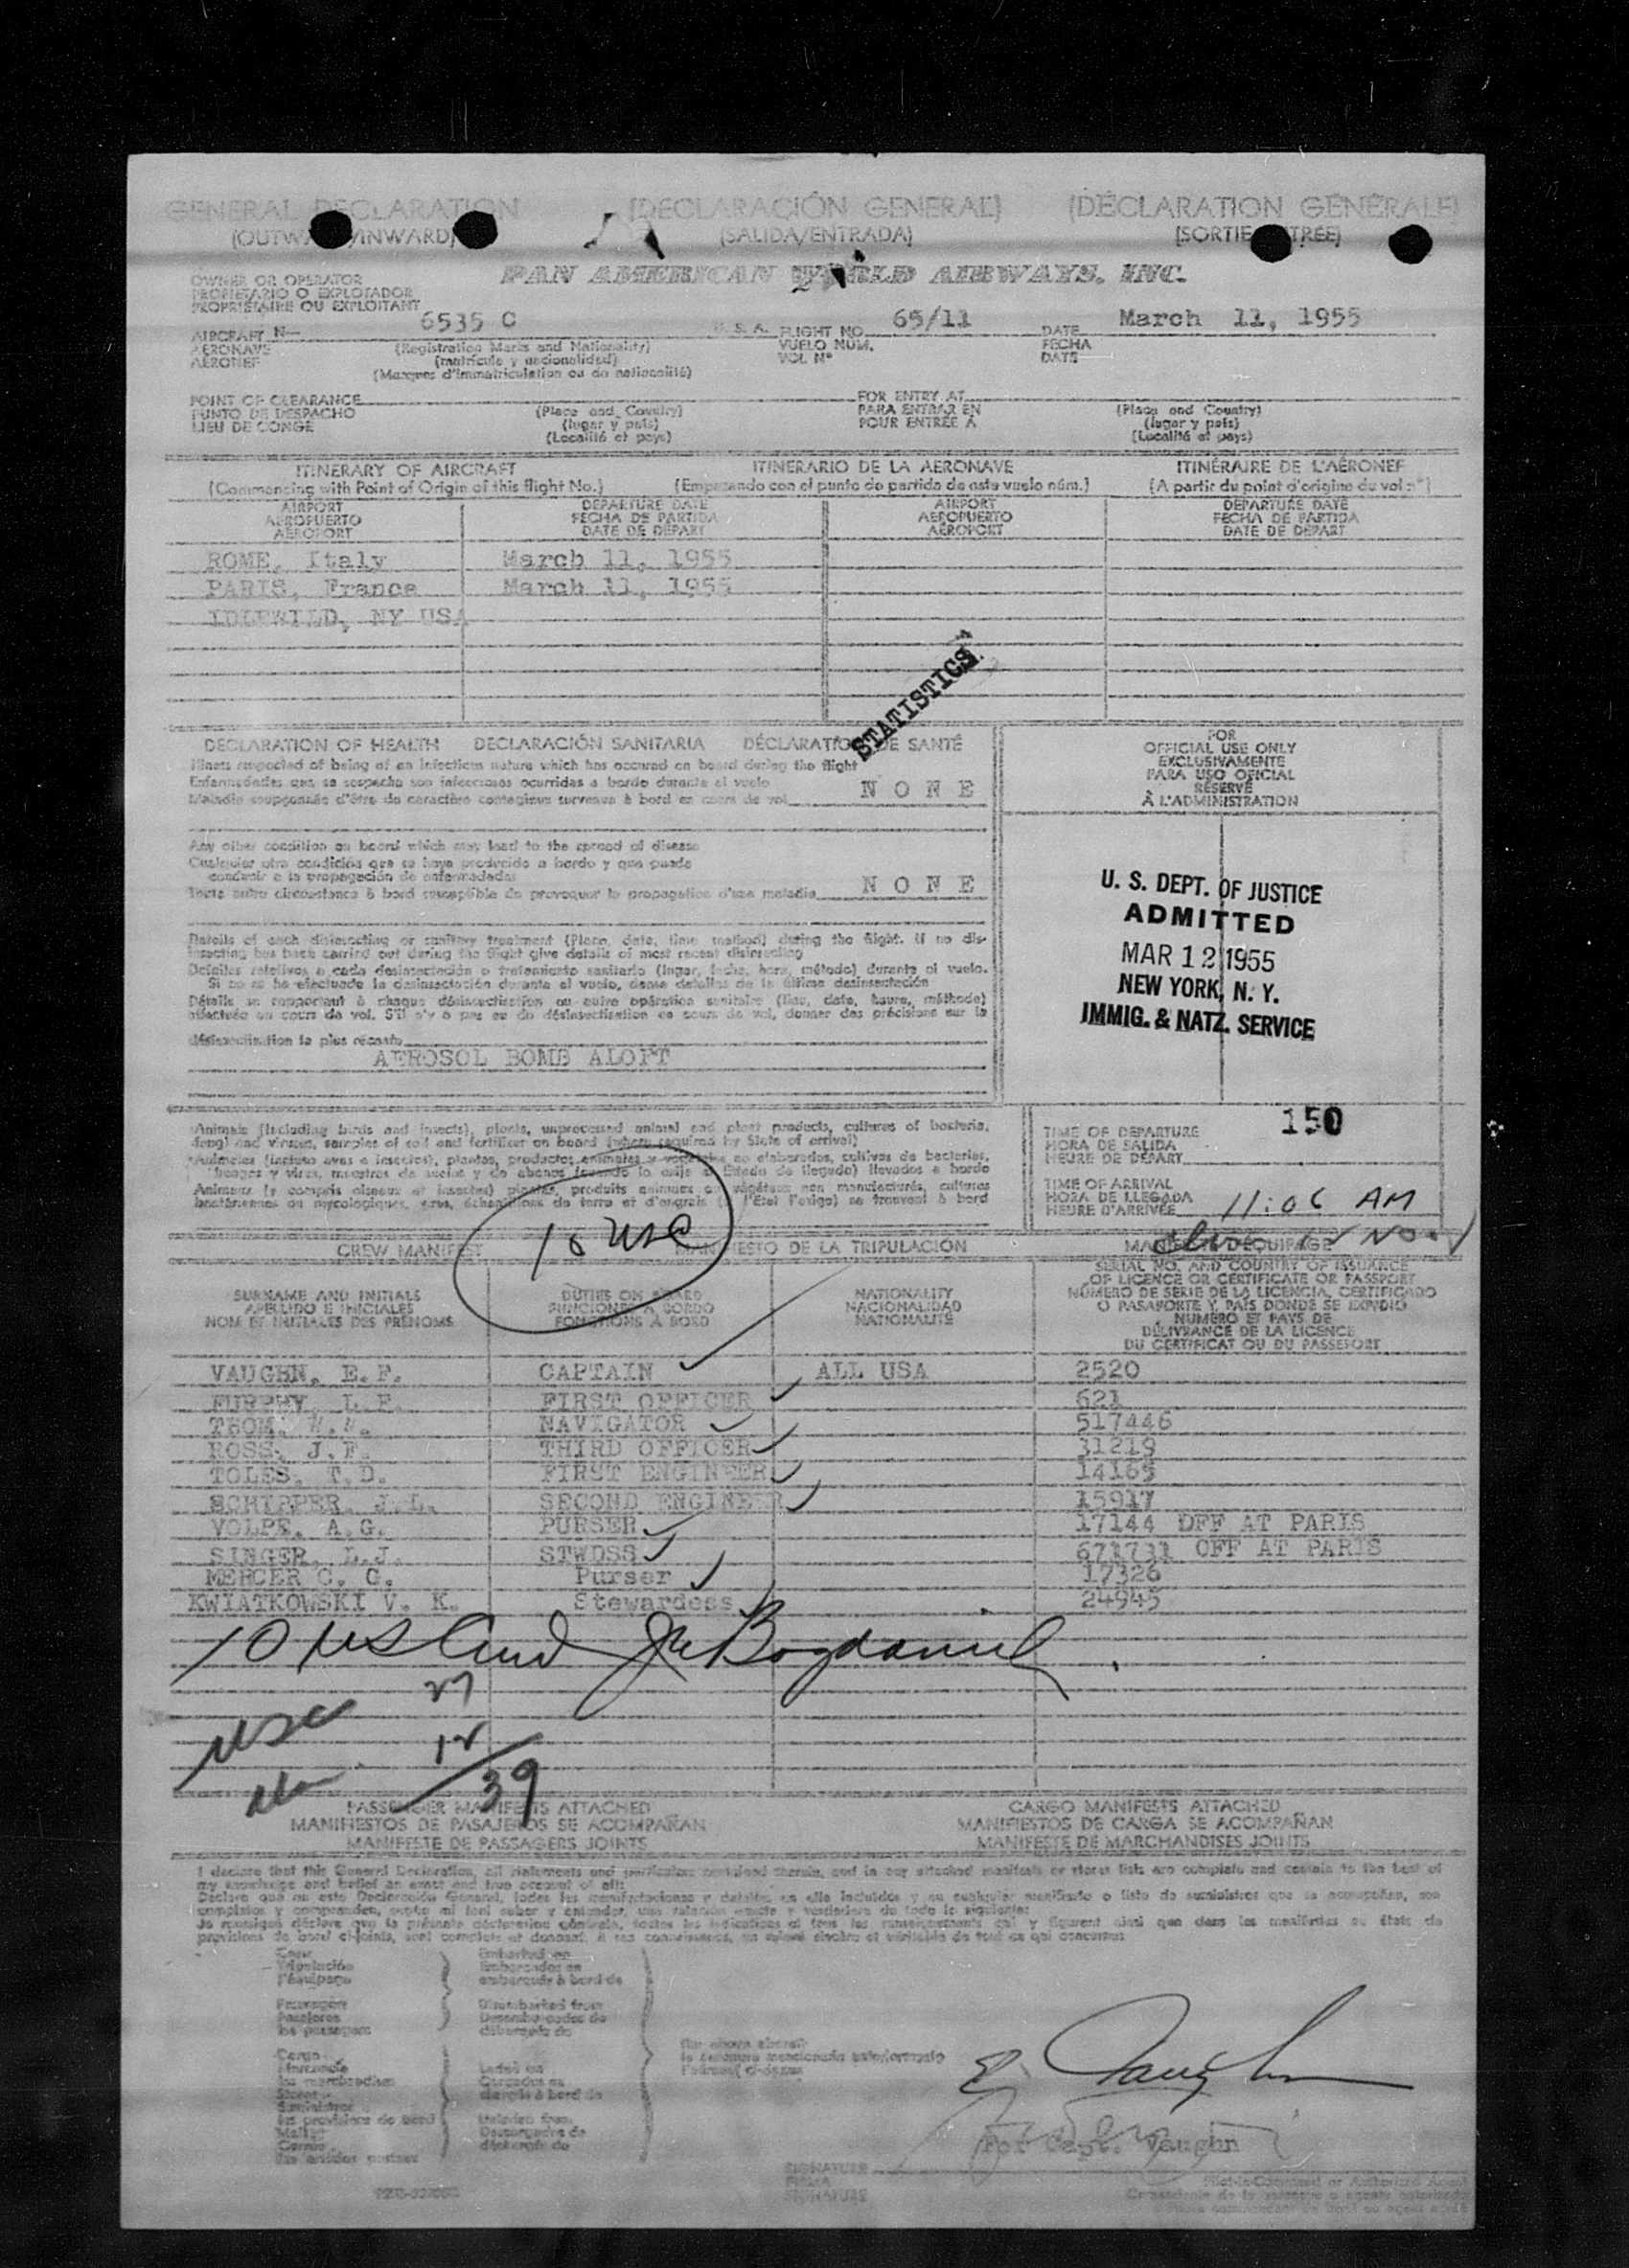 GENERAL DECLARATION (DECLARACIÓN GENERAL) (DÉCLARATION GÉNÉRALE)
(OUTWARD/INWARD) (SALIDA/ENTRADA) (SORTIE/ENTRÉE)
OWNER OR OPERATOR PAN AMERICAN WORLD AIRWAYS, INC.
PROPIETARIO O EXPLOTADOR
PROPRIÉTAIRE OU EXPLOITANT
AIRCRAFT N— 6535 C U. S. A. FLIGHT NO. 65/11 DATE March 11, 1955
AERONAVE (Registration Marks and Nationality) VUELO NUM. FECHA
AÉRONEF (matrícula y nacionalidad) VOL Nº DATE
(Marques d'immatriculation ou de nationalité)
POINT OF CLEARANCE FOR ENTRY AT
PUNTO DE DESPACHO (Place and Country) PARA ENTRAR EN (Place and Country)
LIEU DE CONGÉ (lugar y país) POUR ENTRÉE À (lugar y país)
(Localité et pays) (Localité et pays)
ITINERARY OF AIRCRAFT ITINERARIO DE LA AERONAVE ITINÉRAIRE DE L'AÉRONEF
(Commencing with Point of Origin of this flight No.) (Empezando con el punto de partida de este vuelo núm.) (A partir du point d'origine du vol nº)
AIRPORT DEPARTURE DATE AIRPORT DEPARTURE DATE
AEROPUERTO FECHA DE PARTIDA AEROPUERTO FECHA DE PARTIDA
AÉROPORT DATE DE DÉPART AÉROPORT DATE DE DÉPART
ROME, Italy March 11, 1955
PARIS, France March 11, 1955
IDLEWILD, NY USA
STATISTICS
DECLARATION OF HEALTH DECLARACIÓN SANITARIA DÉCLARATION DE SANTÉ
Illness suspected of being of an infectious nature which has occurred on board during the flight
Enfermedades que se sospecha son infecciosas ocurridas a bordo durante el vuelo
Maladie soupçonnée d'être de caractère contagieux survenue à bord en cours de vol NONE
Any other condition on board which may lead to the spread of disease
Cualquier otra condición que se haya producido a bordo y que pueda
conducir a la propagación de enfermedades
Toute autre circonstance à bord susceptible de provoquer la propagation d'une maladie NONE
Details of each disinsecting or sanitary treatment (Place, date, time method) during the flight. If no dis-
insecting has been carried out during the flight give details of most recent disinsecting
Detalles relativos a cada desinsectación o tratamiento sanitario (lugar, fecha, hora, método) durante el vuelo.
Si no se ha efectuado la desinsectación durante el vuelo, dense detalles de la última desinsectación
Détails se rapportant à chaque désinsectisation ou autre opération sanitaire (lieu, date, heure, méthode)
effectuée au cours du vol. S'il n'y a pas eu de désinsectisation en cours de vol, donner des précisions sur la
désinsectisation la plus récente
AEROSOL BOMB ALOFT
FOR
OFFICIAL USE ONLY
EXCLUSIVAMENTE
PARA USO OFICIAL
RÉSERVÉ
À L'ADMINISTRATION
U. S. DEPT. OF JUSTICE
ADMITTED
MAR 12 1955
NEW YORK, N. Y.
IMMIG. & NATZ. SERVICE
Animals (including birds and insects), plants, unprocessed animal and plant products, cultures of bacteria,
fungi and viruses, samples of soil and fertilizer on board (where required by State of arrival)
Animales (incluso aves e insectos), plantas, productos animales y vegetales no elaborados, cultivos de bacterias,
hongos y virus, muestras de suelo y de abonos (cuando lo exija el Estado de llegada) llevados a bordo
Animaux (y compris oiseaux et insectes) plantes, produits animaux ou végétaux non manufacturés, cultures
bactériennes ou mycologiques, virus, échantillons de terre et d'engrais (si l'État l'exige) se trouvant à bord
150
TIME OF DEPARTURE
HORA DE SALIDA
HEURE DE DÉPART
TIME OF ARRIVAL
HORA DE LLEGADA
HEURE D'ARRIVÉE 11:06 AM
10 USC
CREW MANIFEST MANIFIESTO DE LA TRIPULACIÓN MANIFESTE D'ÉQUIPAGE
SURNAME AND INITIALS DUTIES ON BOARD NATIONALITY SERIAL NO. AND COUNTRY OF ISSUANCE
APELLIDO E INICIALES FUNCIONES A BORDO NACIONALIDAD OF LICENCE OR CERTIFICATE OR PASSPORT
NOM ET INITIALES DES PRÉNOMS FONCTIONS À BORD NATIONALITÉ NÚMERO DE SERIE DE LA LICENCIA, CERTIFICADO
O PASAPORTE Y PAÍS DONDE SE EXPIDIÓ
NUMÉRO ET PAYS DE
DÉLIVRANCE DE LA LICENCE
DU CERTIFICAT OU DU PASSEPORT
VAUGHN, E.F. CAPTAIN ALL USA 2520
MURPHY, L.E. FIRST OFFICER 621
THOM, W.W. NAVIGATOR 517446
ROSS, J.F. THIRD OFFICER 31219
TOLES, T.D. FIRST ENGINEER 14165
SCHIPPER, J.L. SECOND ENGINEER 15917
VOLPE, A.G. PURSER 17144 OFF AT PARIS
SINGER, L.J. STWDSS 671731 OFF AT PARIS
MERCER C. G. Purser 17326
KWIATKOWSKI V. K. Stewardess 24945
10 US
27
USC
12
39
PASSENGER MANIFESTS ATTACHED CARGO MANIFESTS ATTACHED
MANIFIESTOS DE PASAJEROS SE ACOMPAÑAN MANIFIESTOS DE CARGA SE ACOMPAÑAN
MANIFESTE DE PASSAGERS JOINTS MANIFESTE DE MARCHANDISES JOINTS
I declare that this General Declaration, all statements and particulars contained therein, and in any attached manifests or stores lists are complete and contain to the best of
my knowledge and belief an exact and true account of all:
Crew Embarked on
Tripulación Embarcados en
l'équipage embarqués à bord de
Passengers Disembarked from
Pasajeros Desembarcados de
les passagers débarqués de
Cargo
Mercancía Laded on
les marchandises Cargados en
Stores chargés à bord de
Suministros
les provisions de bord Unladen from
Mail Descargados de
Correo déchargés de
the above aircraft
E. Vaughn
For Capt. Vaughn
SIGNATURE
FIRMA
SIGNATURE
Pilot-in-Command or Authorized Agent